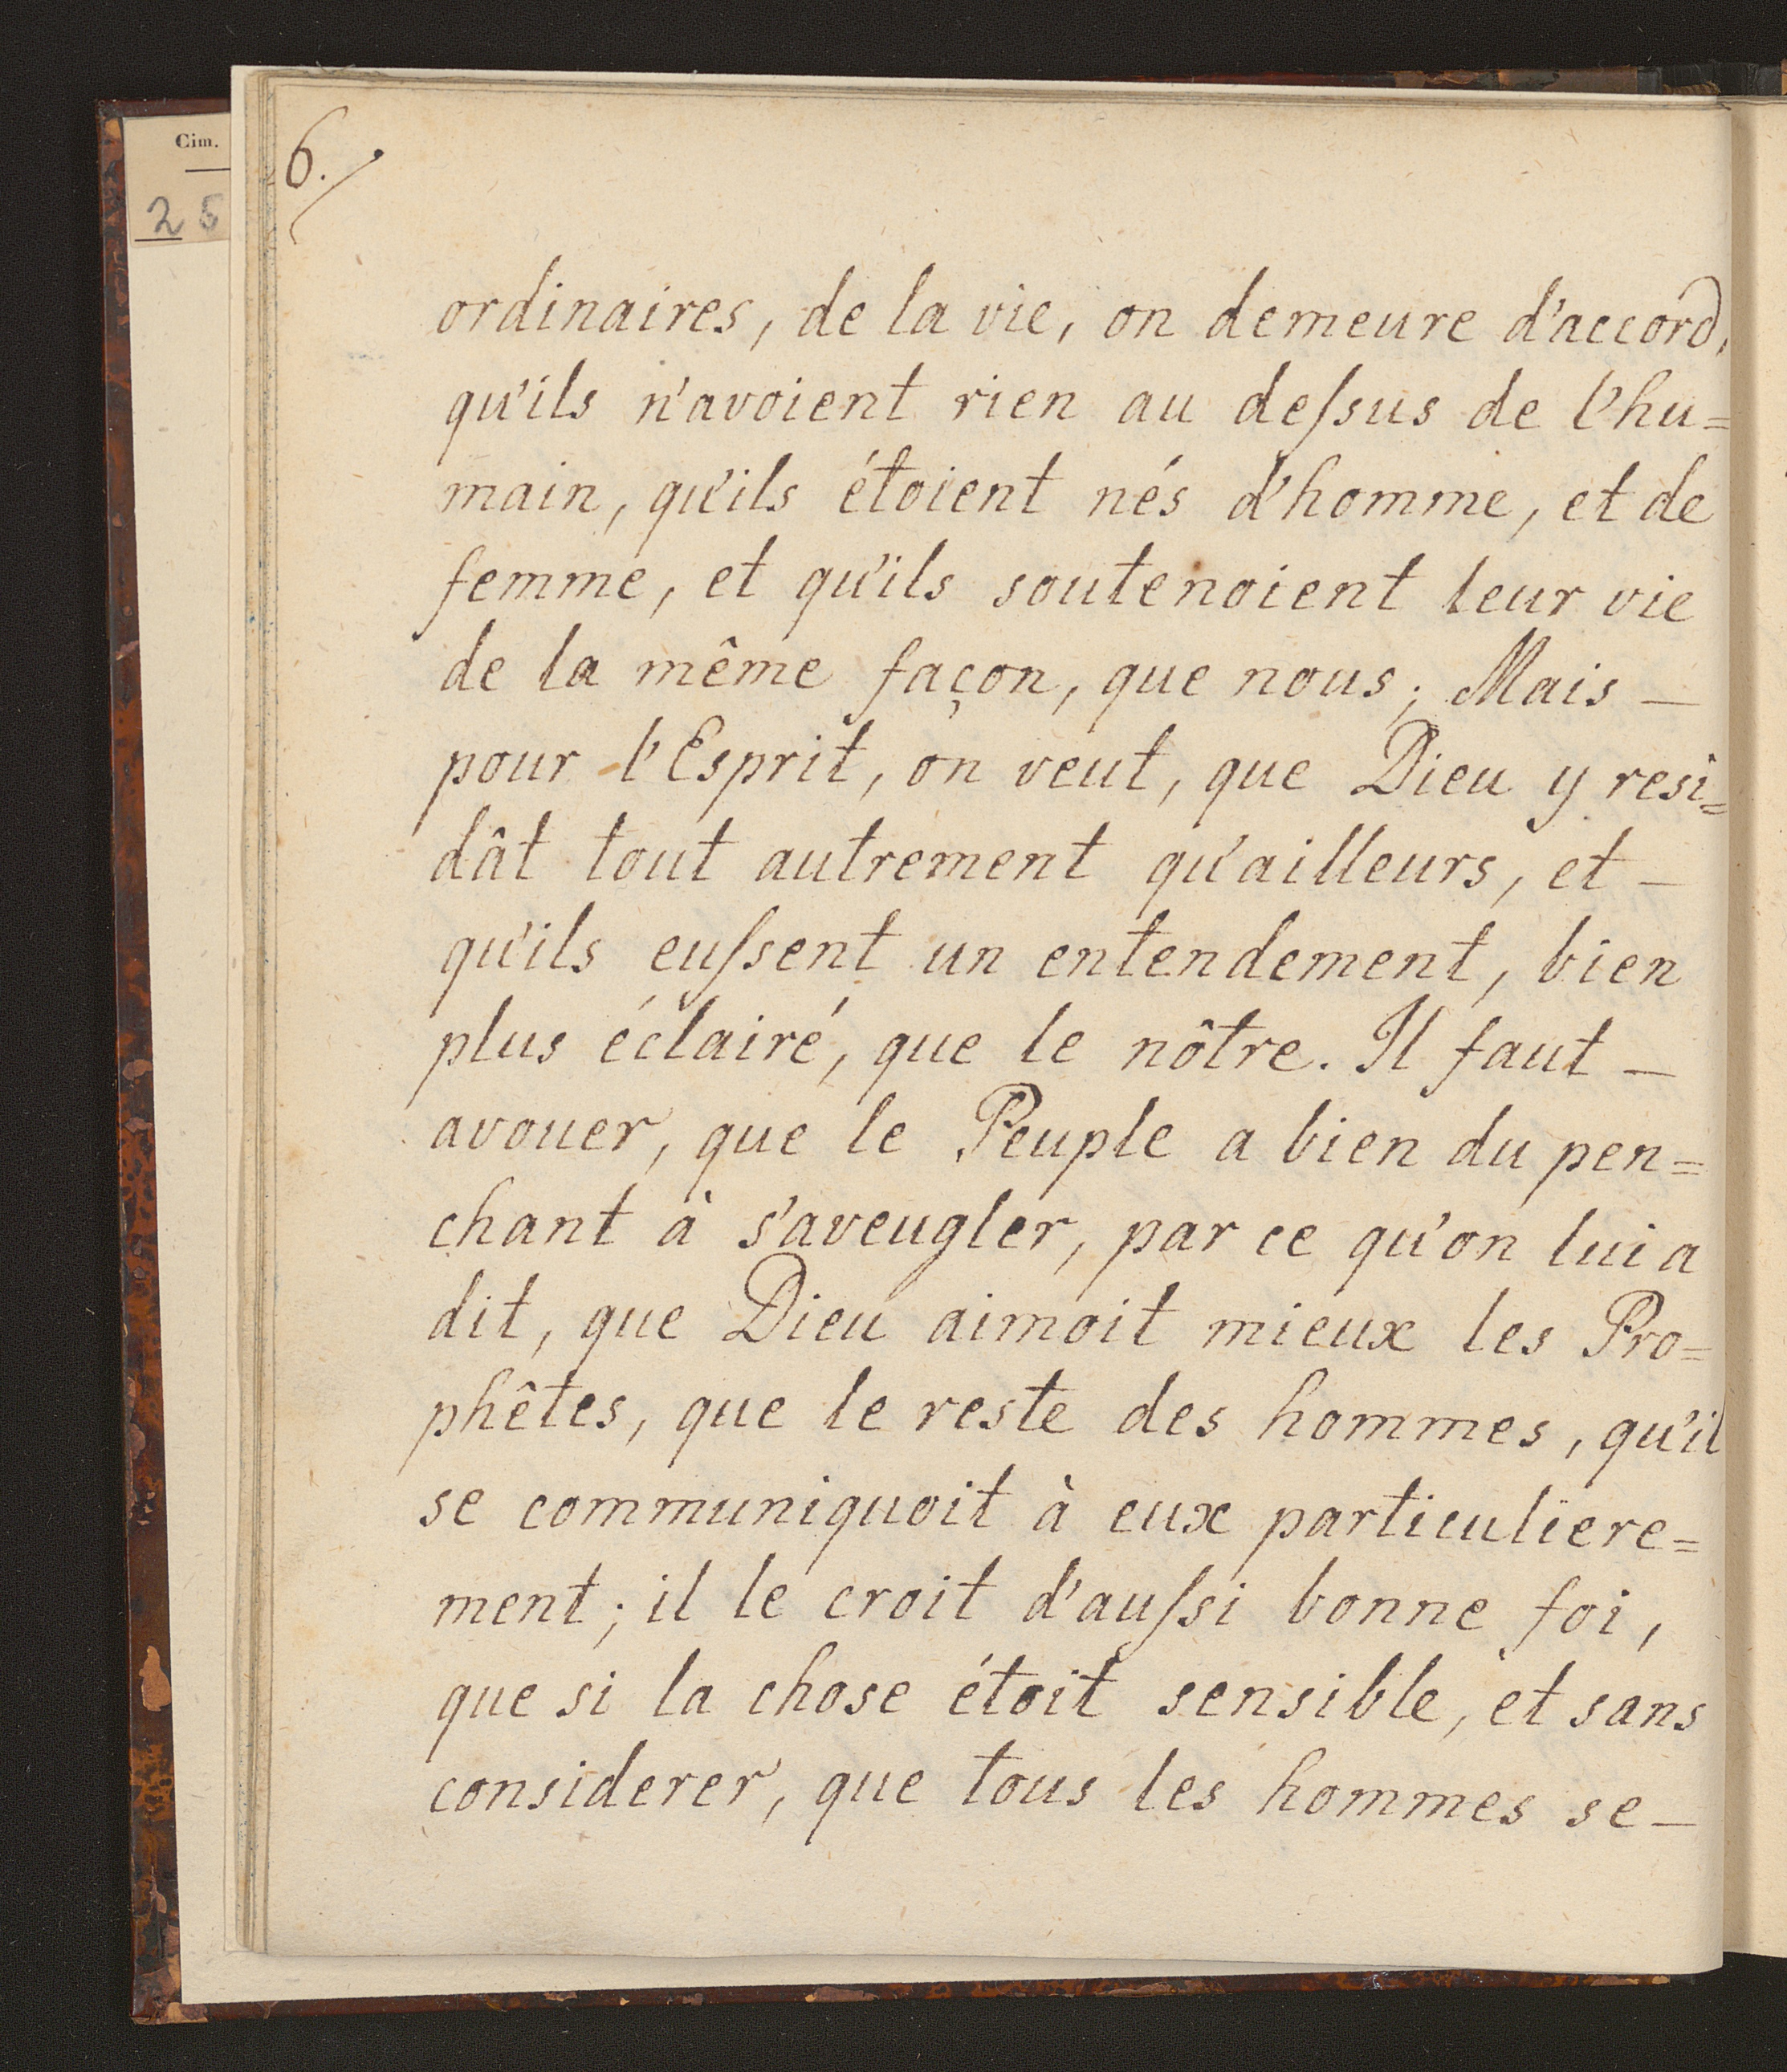 Cim.
25
6.
ordinaires, de la vie, on demeure d'accord,
qu'ils n'avoient rien au deſsus de l'hu=
main, qu'ils étoient nés d'homme, et de
femme, et qu'ils soutenoient leur vie
de la même façon, que nous; Mais —
pour l'Esprit, on veut, que Dieu y resi=
dât tout autrement qu'ailleurs, et —
qu'ils euſsent un entendement, bien
plus éclairé, que le nôtre. Il faut —
avouer, que le Peuple a bien du pen=
chant à s'aveugler, par ce qu'on lui a
dit, que Dieu aimoit mieux les Pro=
phêtes, que le reste des hommes, qu'il
se communiquoit à eux particuliere=
ment; il le croit d'auſsi bonne foi,
que si la chose étoit sensible, et sans
considerer, que tous les hommes se —